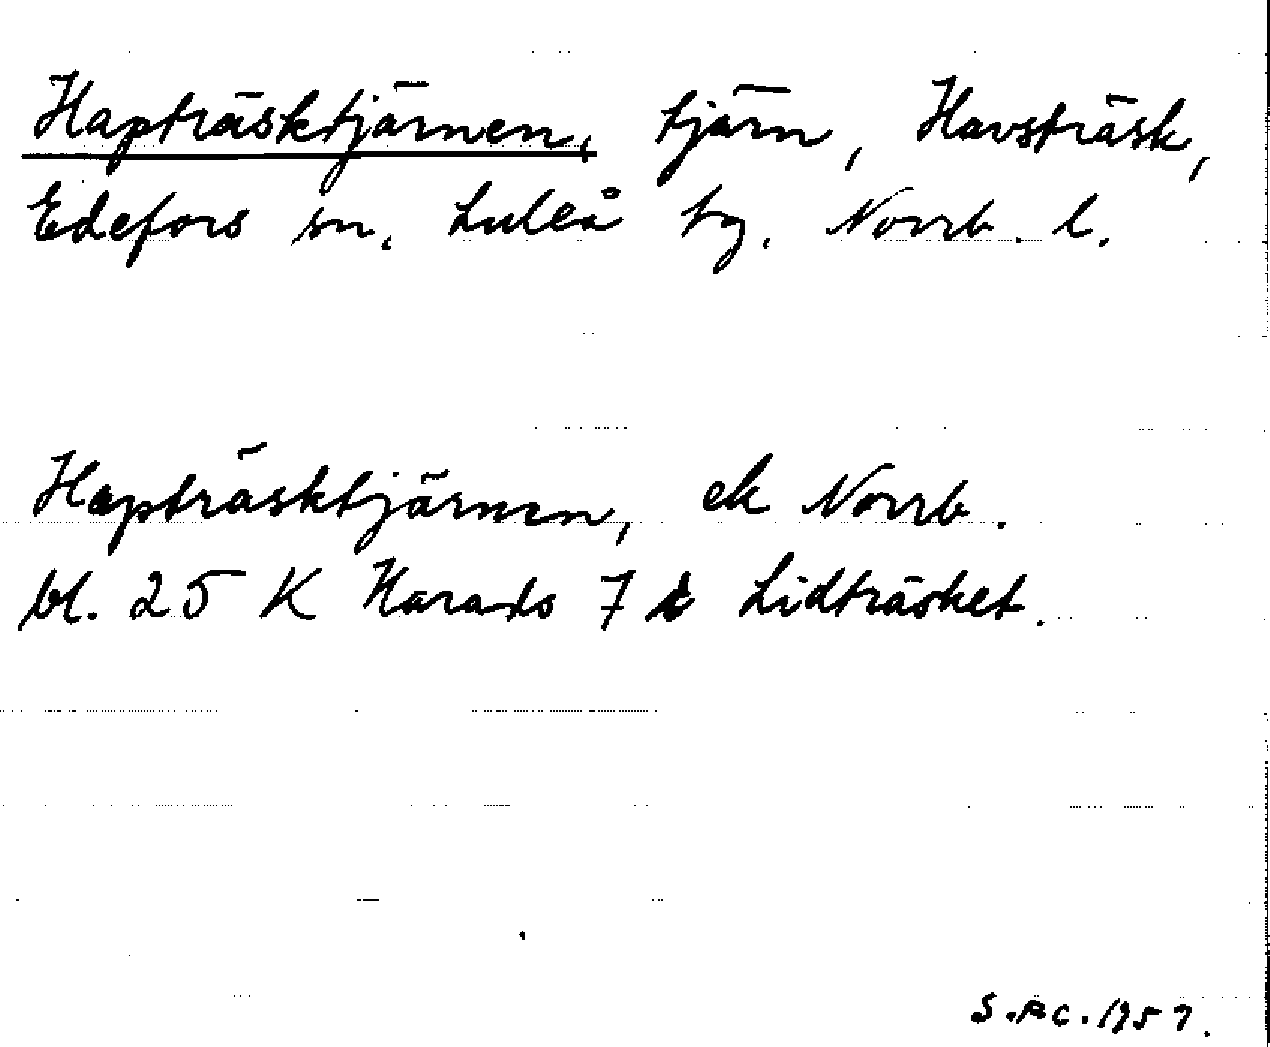 Hapträsktjärnen, tjärn, Havsträsk,
Edefors sn. Luleå tg. Norrb. l.
Hapträsktjärnen, ek Norrb.
bl. 25 K Harads 7 i Lidträsket.
S.BC. 1957.